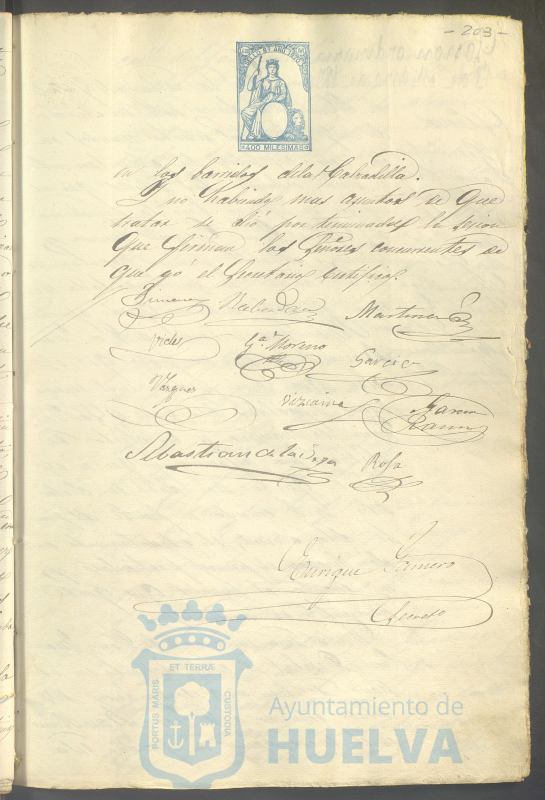 - 203 -
400 MILESIMAS
en los barridos de la Calzadilla.
Y no habiendo mas asuntos de que
tratar se dió por terminada la sesion
que firman los Señores concurrentes de
que yó el Secretario Certifico.
Martinez
Gª Moreno
Garcia
Vazquez
Vizcaino
Garcia
Ramos
Sebastian de la
Rosa
Enrique
ET TERRÆ
PORTUS MARIS
CUSTODIA
Ayuntamiento de
HUELVA